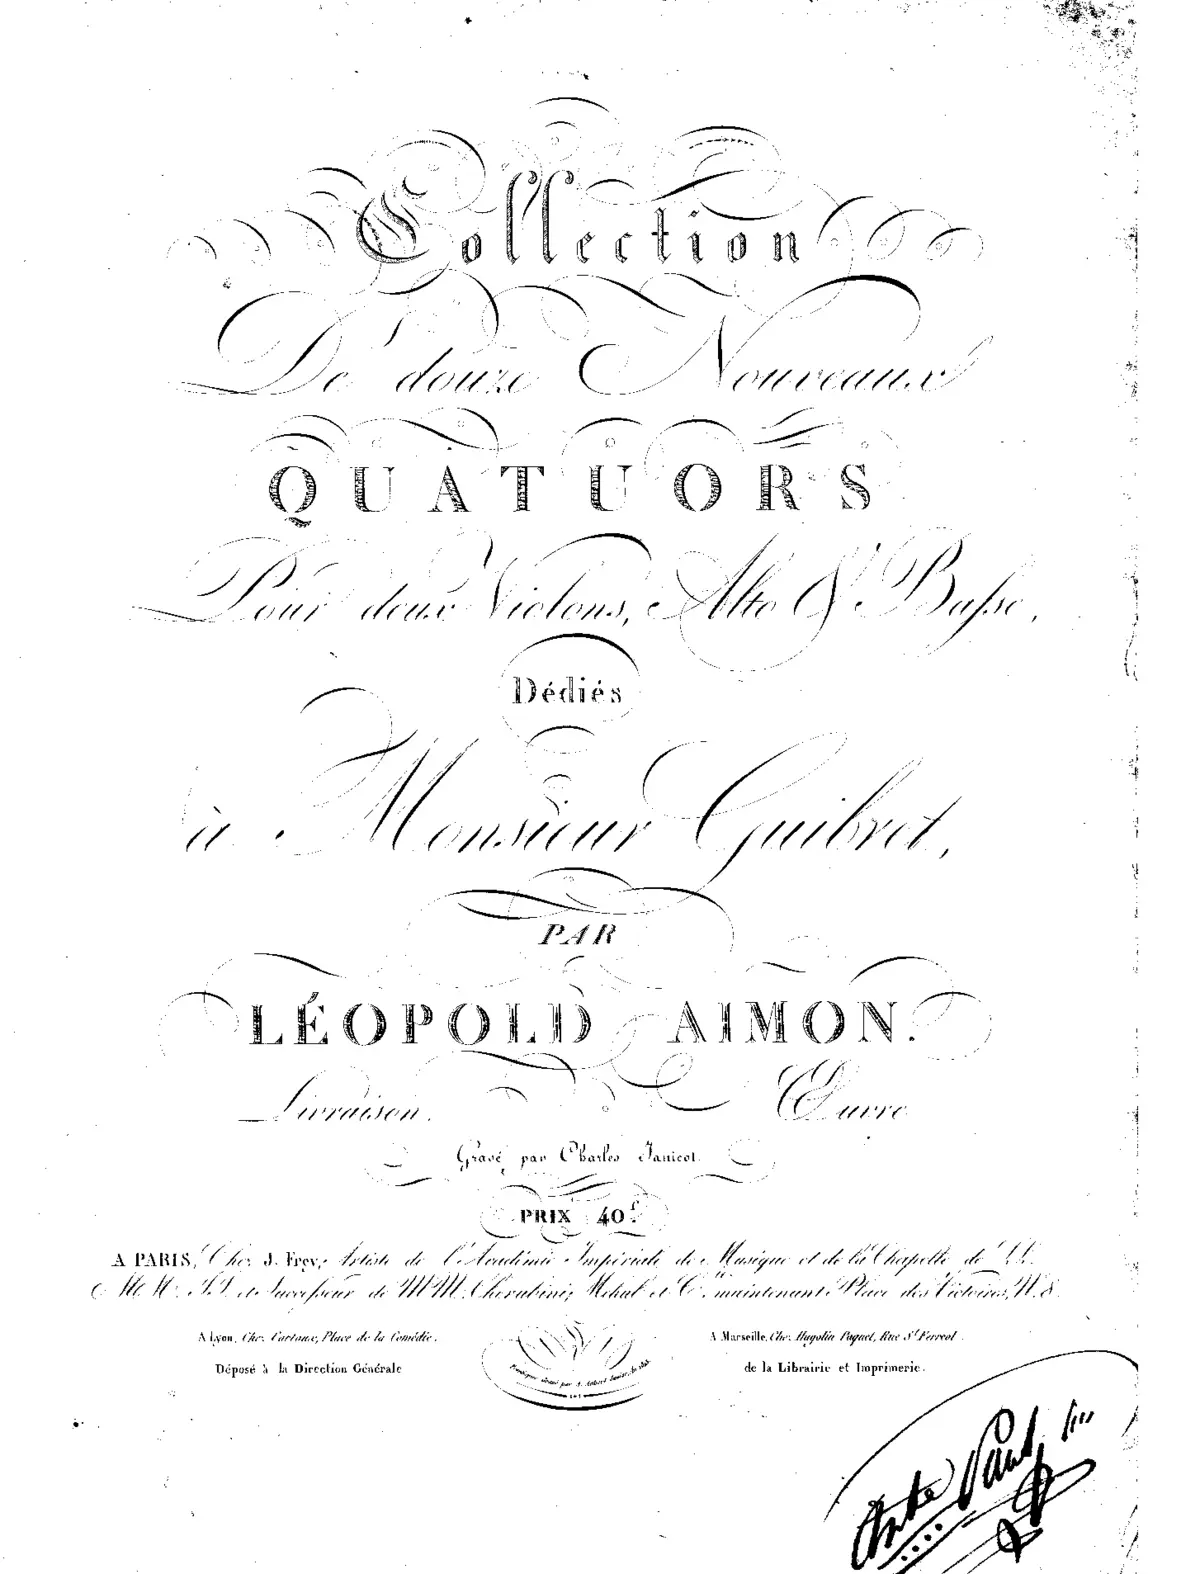 Collection
De douze Nouveaux
QUATUORS
Pour deux Violons, Alto & Basse,
Dédiés
à Monsieur Guibret,
PAR
LÉOPOLD AIMON.
Livraison. Œuvre
Gravé par Charles Janicot.
PRIX 40f.
A PARIS, Chez J. Frey, Artiste de l'Académie Impériale de Musique et de la Chapelle de LL.
MM. II. et Successeur de MM. Cherubini, Méhul et Cie. maintenant Place des Victoires, N. 8.
A Lyon, Chez Cartoux, Place de la Comédie. A Marseille, Chez Hugolin Paquet, Rue St. Ferréol.
Déposé à la Direction Générale de la Librairie et Imprimerie.